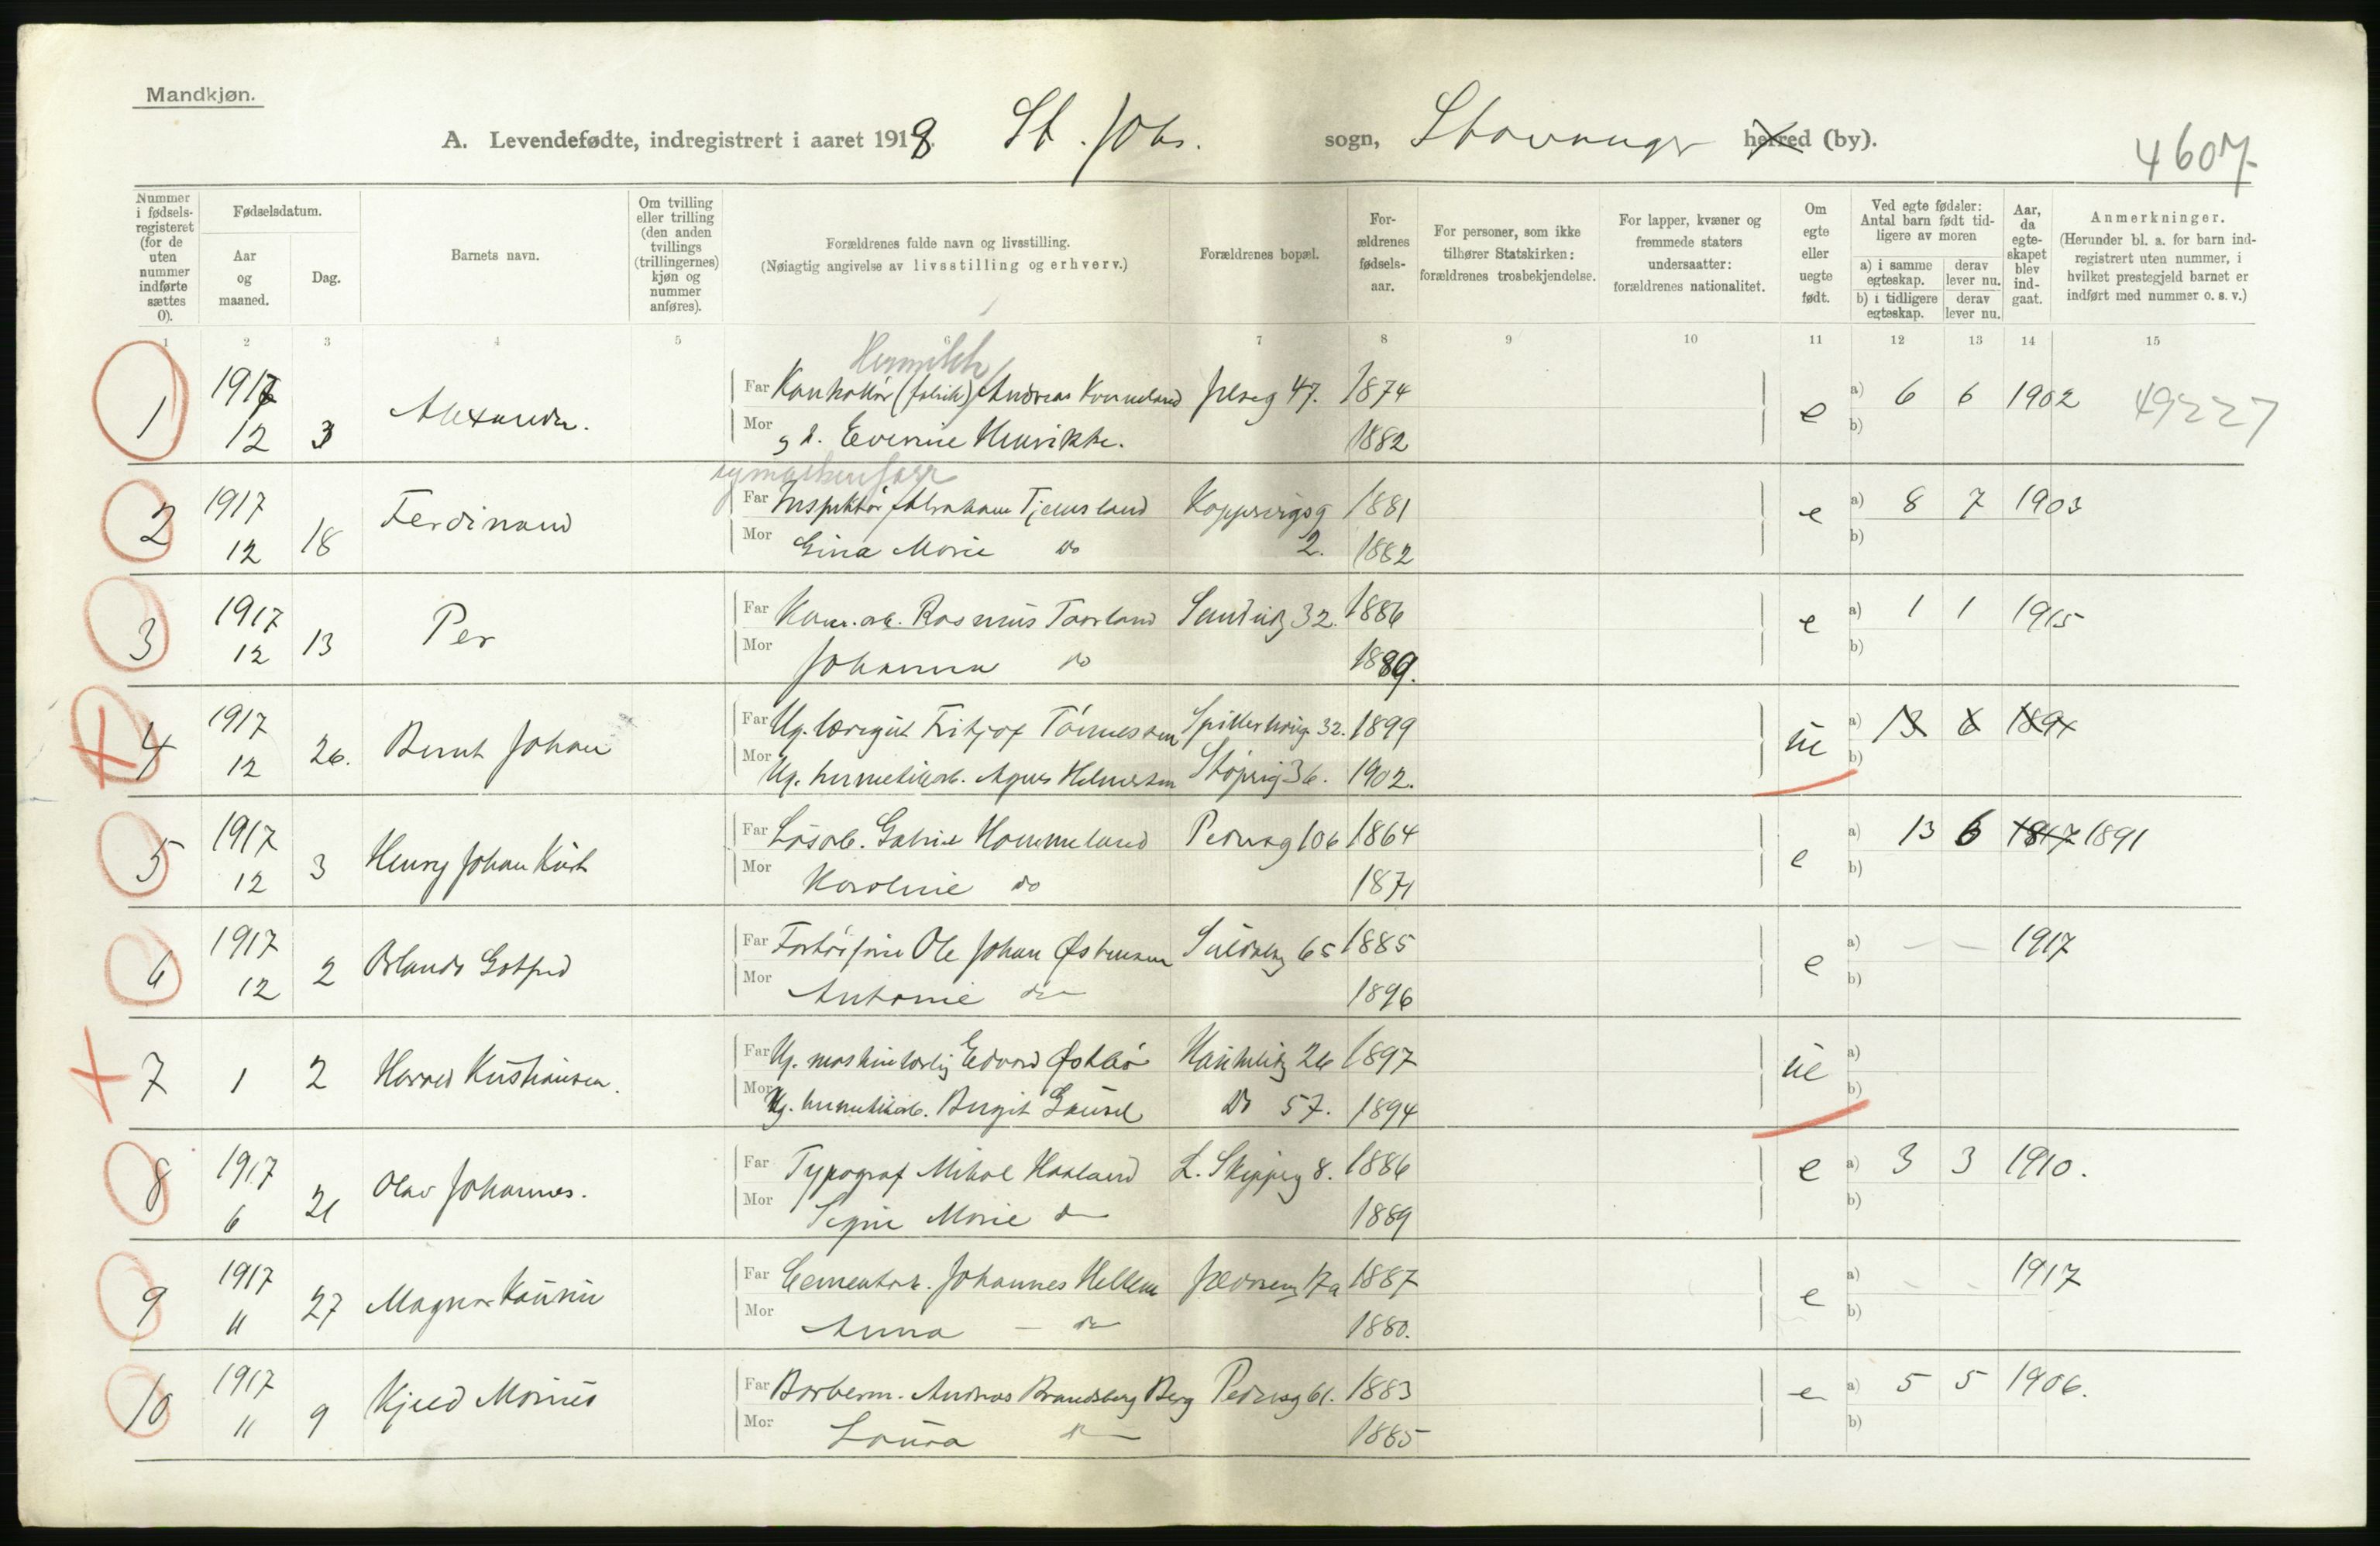 Mandkjøn.
A. Levendefødte, indregistrert i aaret 1918. St. Johs. sogn, Stavanger herred (by).
4607
Nummer i fødsels-registeret (for de uten nummer indførte sættes 0).
Fødselsdatum.
Aar og maaned.
Dag.
Barnets navn.
Om tvilling eller trilling (den anden tvillings (trillingernes) kjøn og nummer anføres).
Forældrenes fulde navn og livsstilling.
(Nøiagtig angivelse av livsstilling og erhverv.)
Forældrenes bopæl.
For-ældrenes fødsels-aar.
For personer, som ikke tilhører Statskirken: forældrenes trosbekjendelse.
For lapper, kvæner og fremmede staters undersaatter: forældrenes nationalitet.
Om egte eller uegte født.
Ved egte fødsler: Antal barn født tid-ligere av moren
a) i samme egteskap. derav lever nu.
b) i tidligere egteskap. derav lever nu.
Aar, da egte-skapet blev ind-gaat.
Anmerkninger.
(Herunder bl. a. for barn ind-registrert uten nummer, i hvilket prestegjeld barnet er indført med nummer o. s. v.)
1 2 3 4 5 6 7 8 9 10 11 12 13 14 15
1 1917 12 3 Alexander.
Far Andreas Kverneland 47. 1874 e a) 6 6 1902 49227
Mor Henrikke. 1882 b)
2 1917 12 18 Ferdinand
Far Inspektør Abraham Tjemsland 1881 e a) 8 7 1903
Mor Gina Marie do 2. 1882 b)
3 1917 12 13 Per
Far Rasmus Taarland 32. 1886 e a) 1 1 1915
Mor Johanna do 1889. b)
4 1917 12 26. Bernt Johan
Far Ug. Fritjof Tønnessen 32. 1899 ue a) 13 6 1891
Mor Ug. hermetikarb. Agnes 36. 1902. b)
5 1917 12 3 Henry Johan
Far Løsarb. Gabriel Hommeland Pedersg 106 1864 e a) 13 6 1917 1891
Mor Karoline do 1871 b)
6 1917 12 2
Far Ole Johan Østensen 65 1885 e a) — — 1917
Mor Antonie do 1896 b)
7 1 2
Far Ug. Edvard Østbø 26 1897 ue a)
Mor Ug. hermetikarb. Birgit Gausel do 57. 1894 b)
8 1917 6 21 Olav Johannes.
Far Typograf Mikal Haaland L. Skipperg 8. 1886 e a) 3 3 1910.
Mor Marie do 1889 b)
9 1917 11 27 Magnar
Far Cementarb. Johannes 17a 1887 e a) - - 1917
Mor Anna — do 1880. b)
10 1917 11 9
Far Barberm. Andreas Brandsberg Berg Pedersg 61. 1883 e a) 5 5 1906.
Mor Laura do 1885 b)